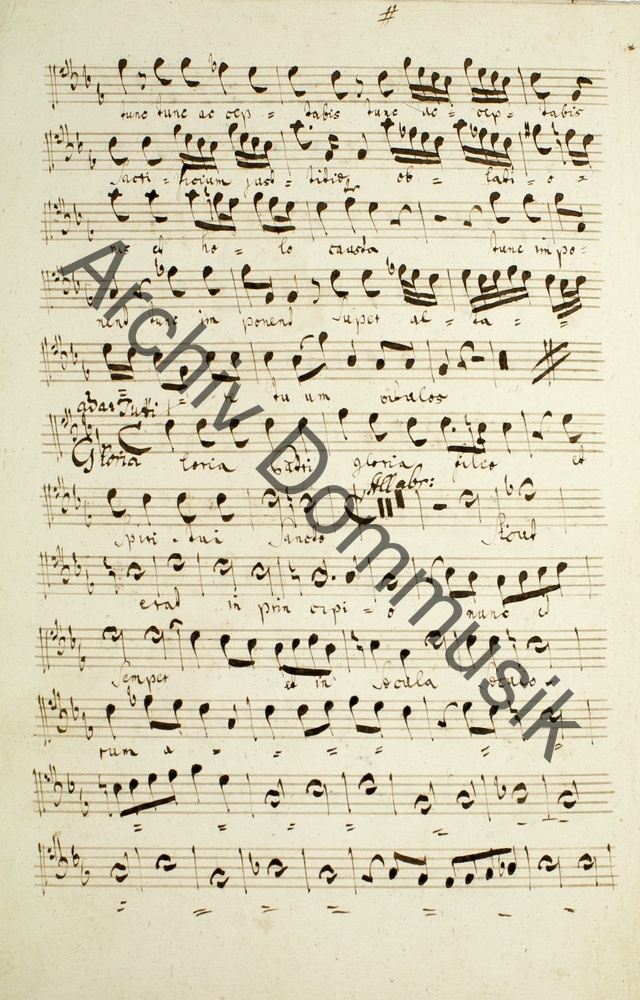 tunc tunc ac cep = tabis tunc ac = cep = tabis
sacti = ficium just = titiæ ob = lati = o =
nis et ho = lo causta tunc impo =
nent tunc im ponent super al = ta =
= = = tuum vitulos
Tutti
Gloria loria Patri gloria filio et
All abr:
Spiri = tui Sancto Sicut
erat in prin cipi = o nunc et
semper et in secula seculo
rum a = = = = = =
= = = = =
= = = =
Archiv Dommusik